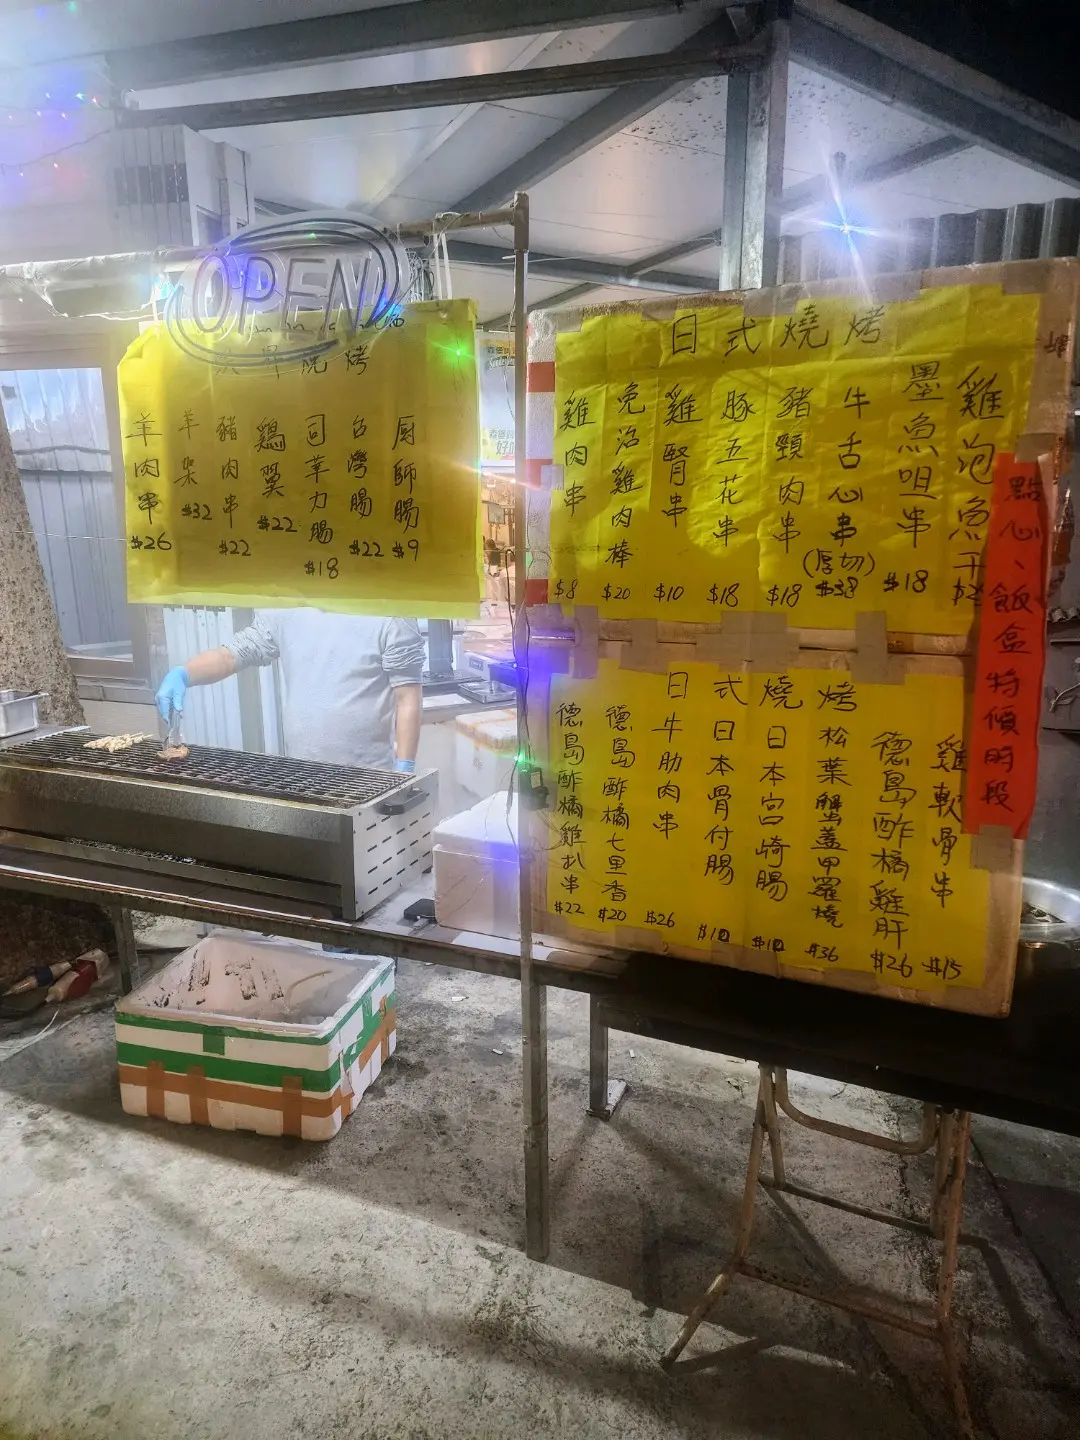 OPEN
燒烤
羊肉串 $26
羊架 $32
豬肉串 $22
鷄翼 $22
司華力腸 $18
台灣腸 $22
厨師腸 $9
日式燒烤
雞肉串 $8
免治雞肉棒 $20
雞腎串 $10
豚五花串 $18
豬頸肉串 $18
牛舌心串 (厚切) $38
墨魚咀串 $18
雞泡魚干
日式燒烤
德島酢橘雞扒串 $22
德島酢橘七里香 $20
牛肋肉串 $26
日本骨付腸 $10
日本宮崎腸 $10
松葉蟹蓋甲羅燒 $36
德島酢橘雞肝 $26
雞軟骨串 $15
點心、飯盒特價時段